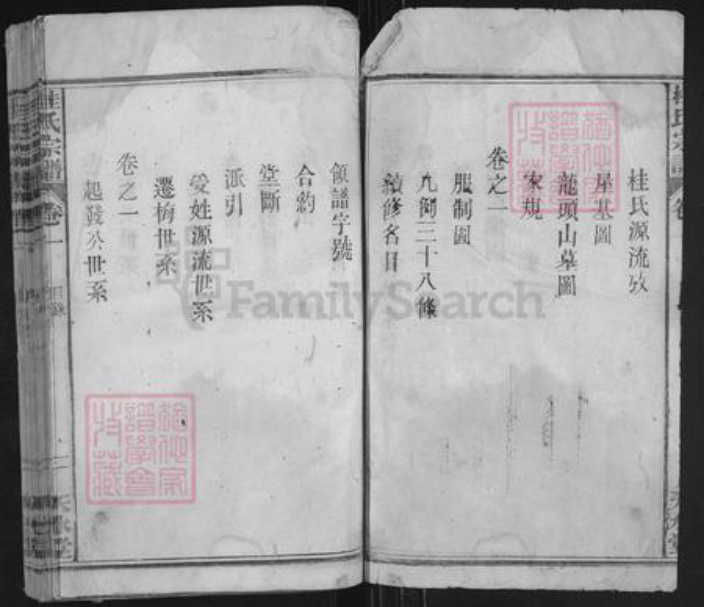 桂氏源流攷
屋基圖
龍頭山墓圖
家規
卷之一
服制圖
九飭三十八條
續修名目
領譜字號
合約
堂斷
派引
受姓源流世系
遷梅世系
卷之一
起發公世系
桂氏宗譜
卷一
FamilySearch